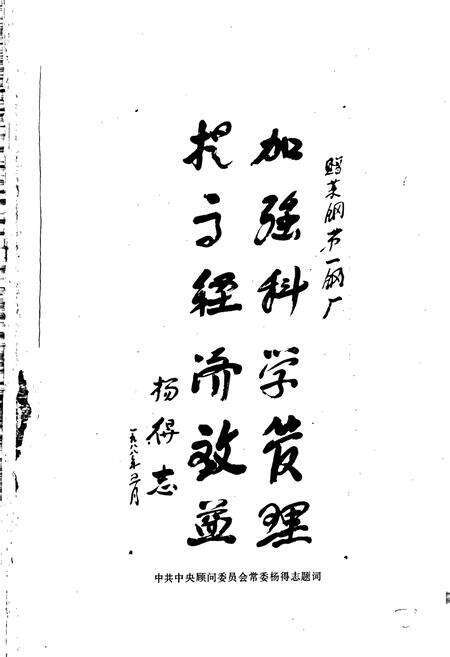 赠莱钢第一钢厂
加强科学管理
提高经济效益
杨得志
一九八八年三月
中共中央顾问委员会常委杨得志题词